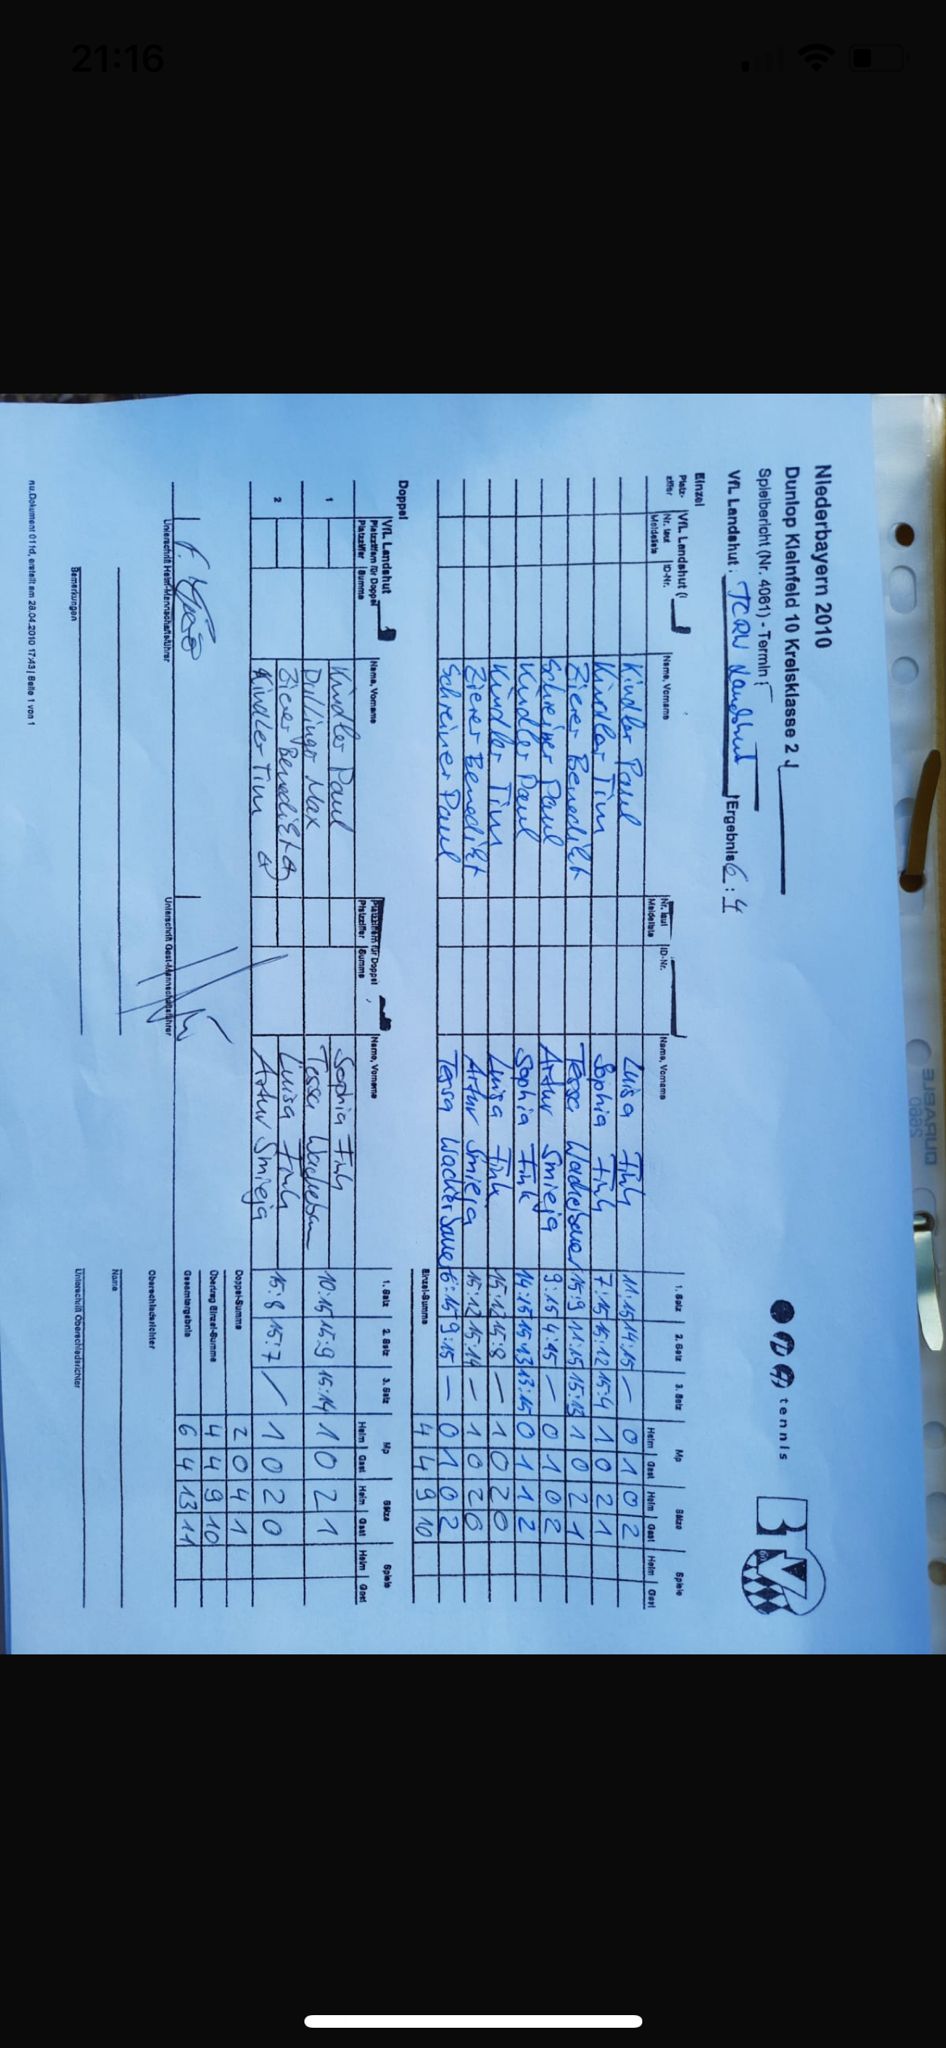 21:16
Niederbayern 2010
Dunlop Kleinfeld 10 Kreisklasse 2
Spielbericht (Nr. 4061) - Termin
VfL Landshut : TCRW Landshut Ergebnis 6:4
tennis
Einzel
Platz- ziffer VfL Landshut ( Nr. laut Meldeliste ID-Nr. Name, Vorname Nr. laut Meldeliste ID-Nr. Name, Vorname 1. Satz 2. Satz 3. Satz Mp Sätze Spiele
Heim Gast Heim Gast Heim Gast
Kindler Paul Luisa Fink 11:15 14:15 — 0 1 0 2
Kindler Tim Sophia Fink 7:15 15:12 15:4 1 0 2 1
Zierer Benedikt Tessa Wackerbauer 15:9 11:15 15:13 1 0 2 1
Schreiner Paul Artur Smieja 9:15 4:15 — 0 1 0 2
Kindler Paul Sophia Fink 14:15 15:13 13:15 0 1 1 2
Kindler Tim Luisa Fink 15:12 15:8 — 1 0 2 0
Zierer Benedikt Artur Smieja 15:12 15:14 — 1 0 2 0
Schreiner Paul Tessa Wackerbauer 6:15 9:15 — 0 1 0 2
Einzel-Summe 4 4 9 10
Doppel
VfL Landshut Platzziffern für Doppel Platzziffer Summe Name, Vorname Platzziffern für Doppel Platzziffer Summe Name, Vorname 1. Satz 2. Satz 3. Satz Mp Sätze Spiele
Heim Gast Heim Gast Heim Gast
1 Kindler Paul Sophia Fink
Dallinger Max Tessa 10:15 15:9 15:14 1 0 2 1
2 Zierer Benedikt Luisa Fink
Kindler Tim Artur Smieja 15:8 15:7 / 1 0 2 0
Doppel-Summe 2 0 4 1
Übertrag Einzel-Summe 4 4 9 10
Gesamtergebnis 6 4 13 11
Unterschrift Heim-Mannschaftsführer Unterschrift Gast-Mannschaftsführer Oberschiedsrichter
Name
Bemerkungen Unterschrift Oberschiedsrichter
nu.Dokument 011d, erstellt am 28.04.2010 17:43 | Seite 1 von 1
DURABLE